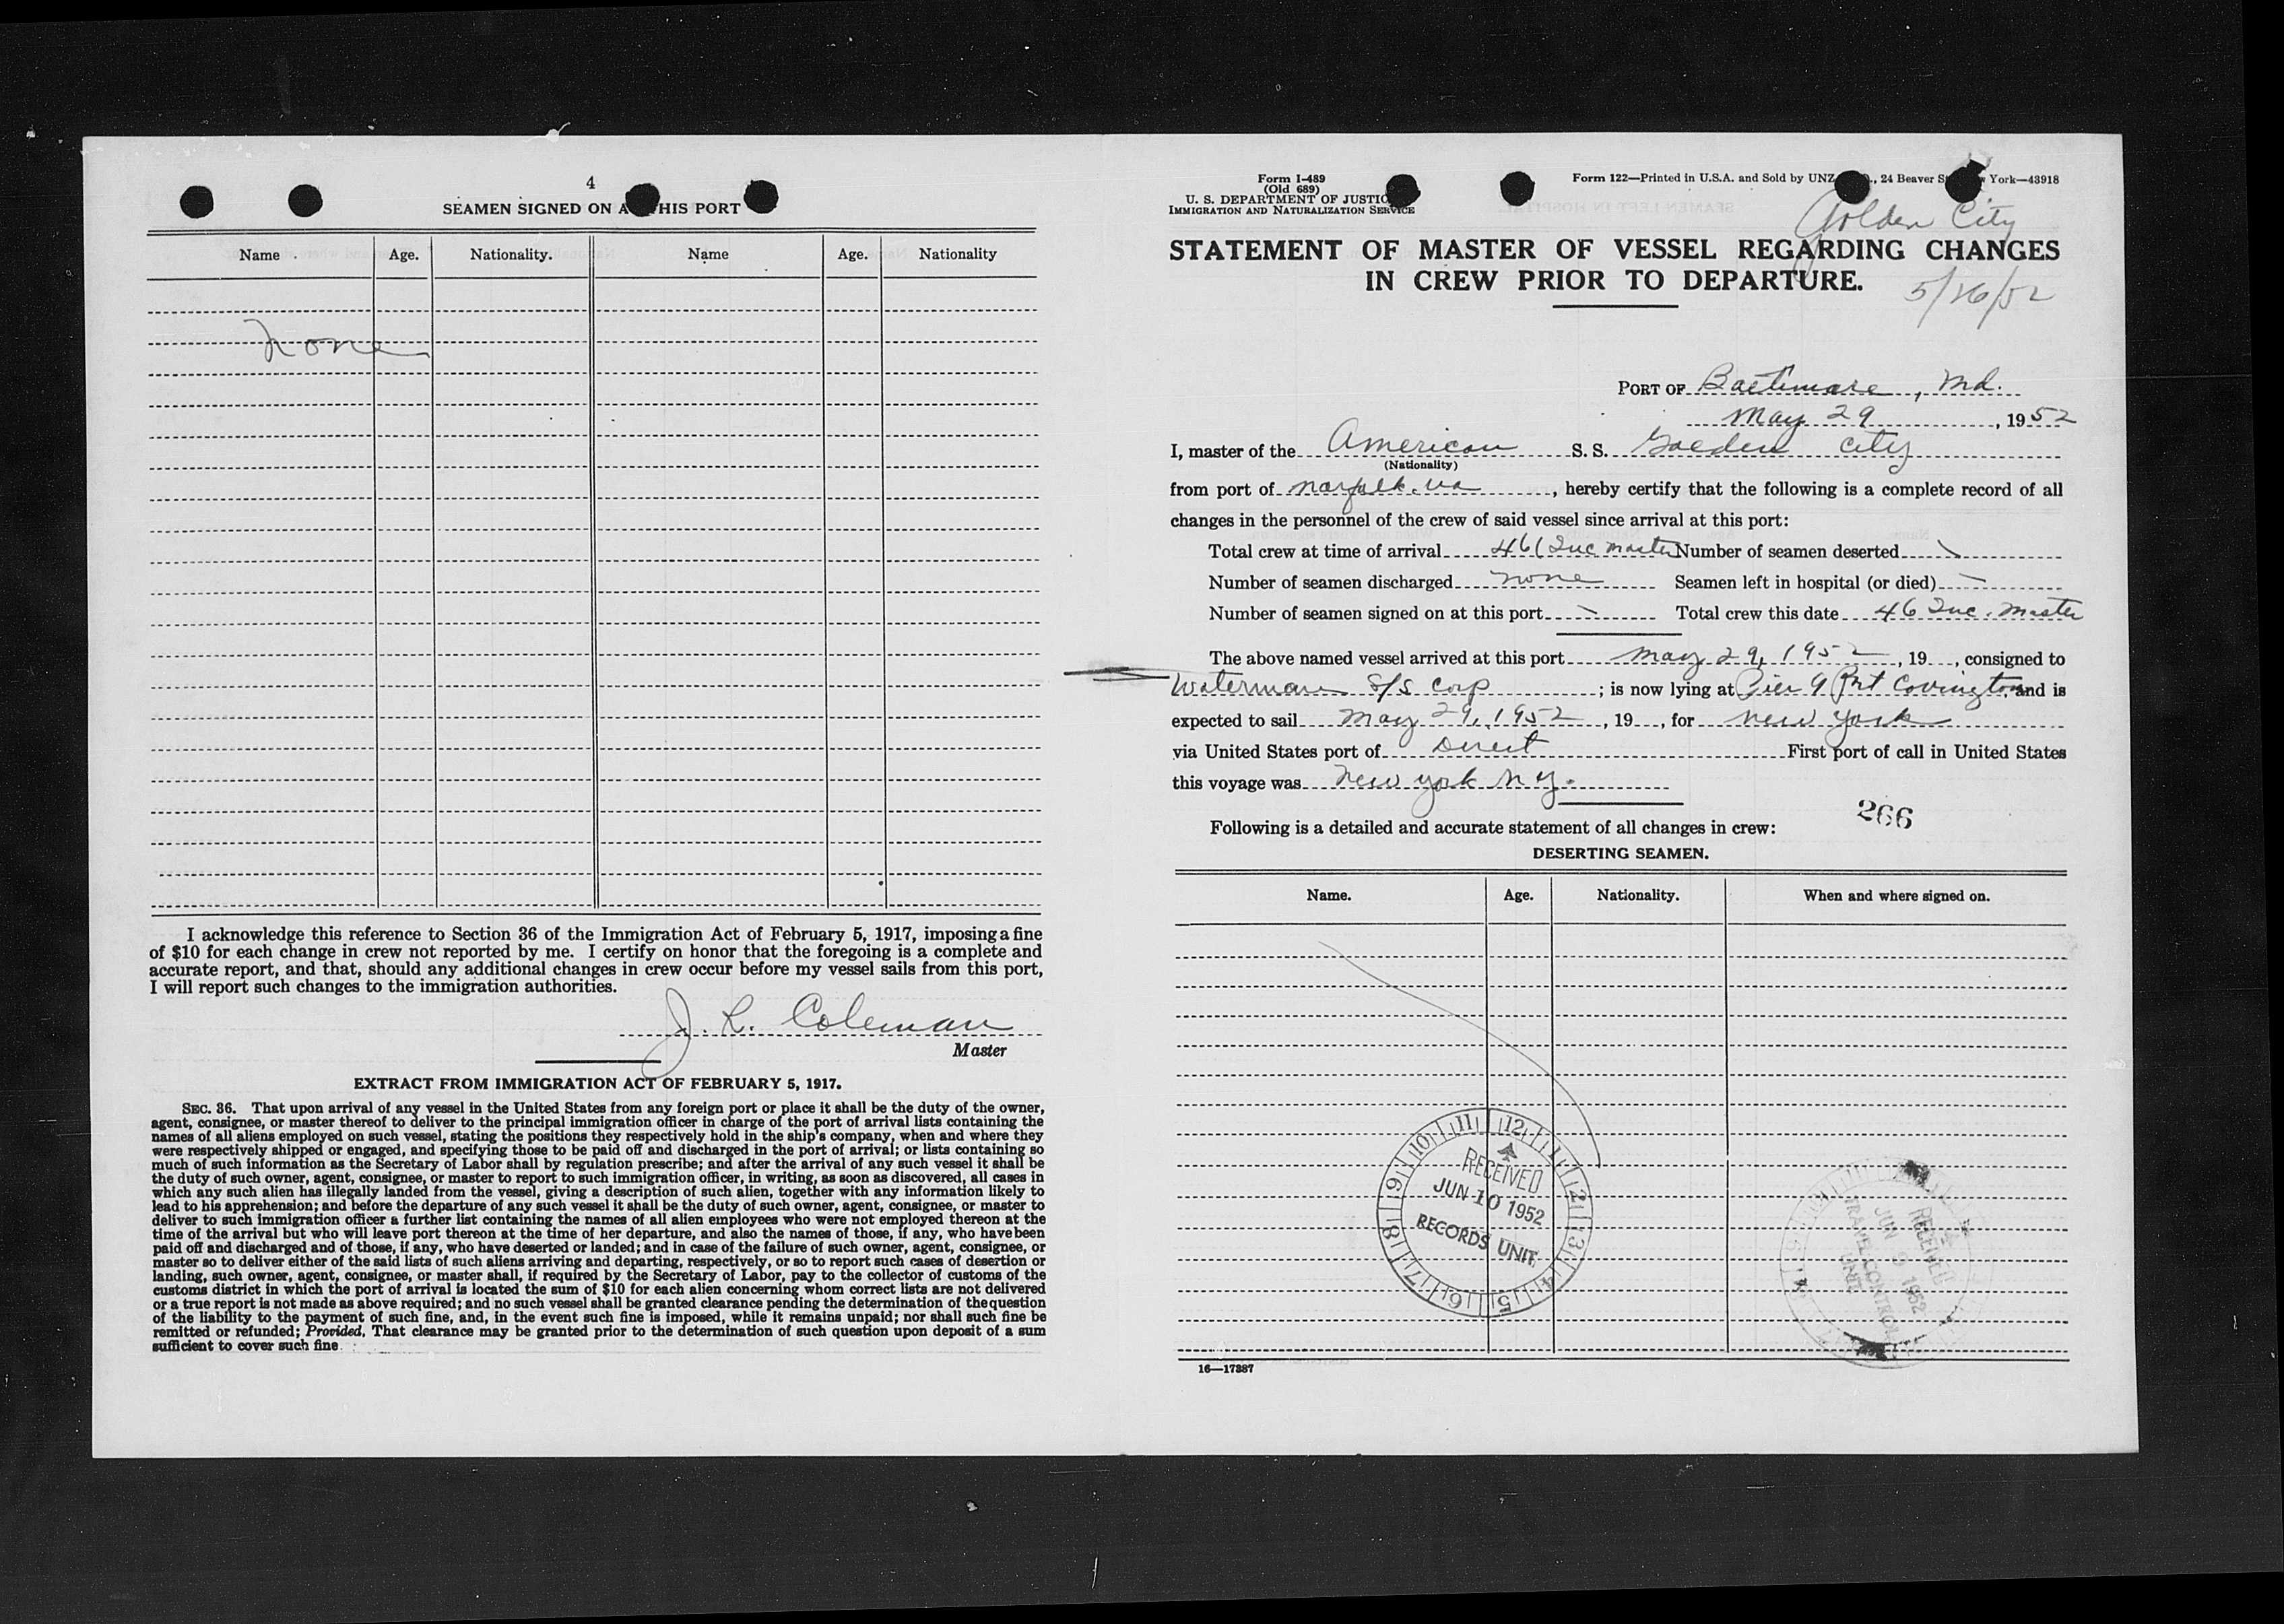 4
SEAMEN SIGNED ON A HIS PORT
Name Age. Nationality. Name Age. Nationality
None
I acknowledge this reference to Section 36 of the Immigration Act of February 5, 1917, imposing a fine
of $10 for each change in crew not reported by me. I certify on honor that the foregoing is a complete and
accurate report, and that, should any additional changes in crew occur before my vessel sails from this port,
I will report such changes to the immigration authorities.
J. L. Coleman
Master
EXTRACT FROM IMMIGRATION ACT OF FEBRUARY 5, 1917.
SEC. 36. That upon arrival of any vessel in the United States from any foreign port or place it shall be the duty of the owner,
agent, consignee, or master thereof to deliver to the principal immigration officer in charge of the port of arrival lists containing the
names of all aliens employed on such vessel, stating the positions they respectively hold in the ship's company, when and where they
were respectively shipped or engaged, and specifying those to be paid off and discharged in the port of arrival; or lists containing so
much of such information as the Secretary of Labor shall by regulation prescribe; and after the arrival of any such vessel it shall be
the duty of such owner, agent, consignee, or master to report to such immigration officer, in writing, as soon as discovered, all cases in
which any such alien has illegally landed from the vessel, giving a description of such alien, together with any information likely to
lead to his apprehension; and before the departure of any such vessel it shall be the duty of such owner, agent, consignee, or master to
deliver to such immigration officer a further list containing the names of all alien employees who were not employed thereon at the
time of the arrival but who will leave port thereon at the time of her departure, and also the names of those, if any, who have been
paid off and discharged and of those, if any, who have deserted or landed; and in case of the failure of such owner, agent, consignee, or
master so to deliver either of the said lists of such aliens arriving and departing, respectively, or so to report such cases of desertion or
landing, such owner, agent, consignee, or master shall, if required by the Secretary of Labor, pay to the collector of customs of the
customs district in which the port of arrival is located the sum of $10 for each alien concerning whom correct lists are not delivered
or a true report is not made as above required; and no such vessel shall be granted clearance pending the determination of the question
of the liability to the payment of such fine, and, in the event such fine is imposed, while it remains unpaid; nor shall such fine be
remitted or refunded; Provided, That clearance may be granted prior to the determination of such question upon deposit of a sum
sufficient to cover such fine
Form I-489
(Old 689)
U. S. DEPARTMENT OF JUSTIC
IMMIGRATION AND NATURALIZATION SERVICE
Form 122—Printed in U.S.A. and Sold by UNZ , 24 Beaver S York—43918
Golden City
STATEMENT OF MASTER OF VESSEL REGARDING CHANGES
IN CREW PRIOR TO DEPARTURE.
5/26/52
PORT OF Baltimore, Md.
May 29, 1952
I, master of the American S. S. Golden City
(Nationality)
from port of Norfolk. Va, hereby certify that the following is a complete record of all
changes in the personnel of the crew of said vessel since arrival at this port:
Total crew at time of arrival 46 (Inc master Number of seamen deserted \
Number of seamen discharged none Seamen left in hospital (or died) \
Number of seamen signed on at this port \ Total crew this date 46 Inc. Master
The above named vessel arrived at this port May 29, 1952, 19 , consigned to
Waterman S/S Corp ; is now lying at Pier 9 Prt Covington, and is
expected to sail May 29, 1952, 19 , for New York
via United States port of Direct First port of call in United States
this voyage was New York N y.
266
Following is a detailed and accurate statement of all changes in crew:
DESERTING SEAMEN.
Name. Age. Nationality. When and where signed on.
11 12 1 2 3 4 5 6 7 8 9 10
RECEIVED
JUN 10 1952
RECORDS UNIT
RECEIVED
JUN 9 1952
TRAVEL CONTROL
UNIT
16—17387